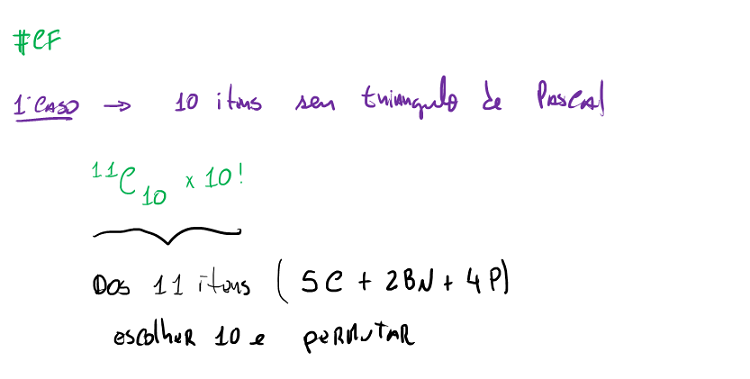 #CF
1º CASO → 10 itens sem triangulo de PASCAL
¹¹C₁₀ x 10!
DOS 11 itens (5C + 2BN + 4P)
escolher 10 e PERMUTAR